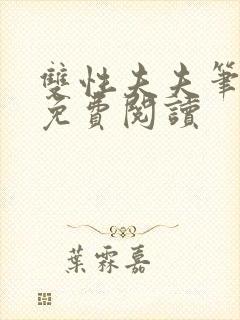 雙性夫夫筆
免費閱讀
葉霖嘉